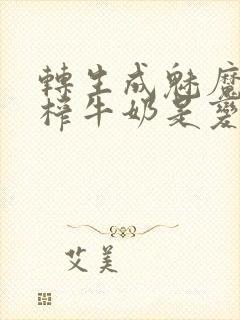 轉生成魅魔
榨牛奶是變
艾美